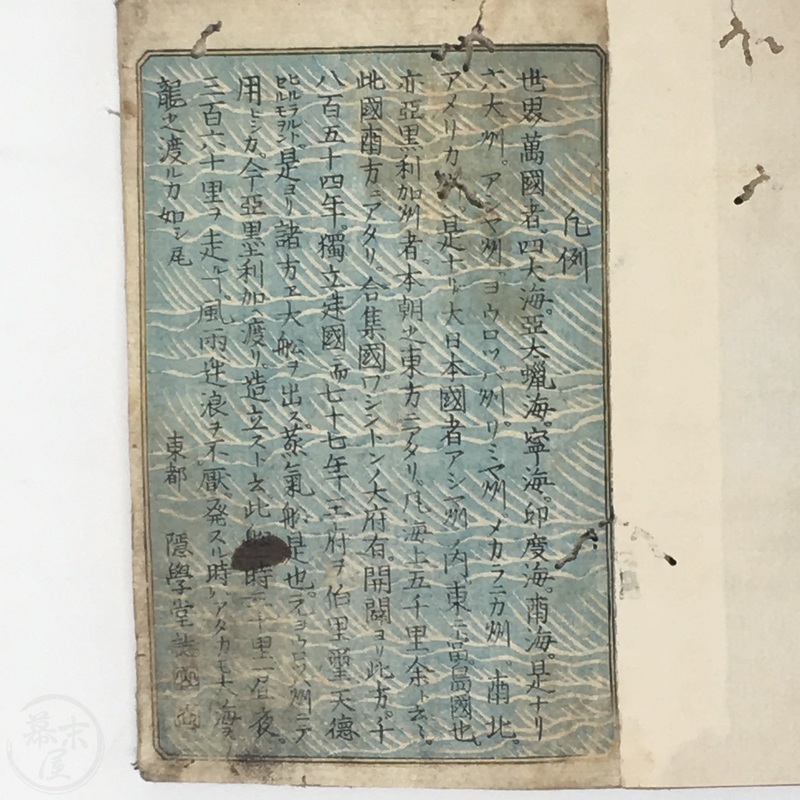 凡例
世界萬國者。四大海。亞太蠟海。寧海。印度海。南海。是ナリ
六大州。アシヤ州。ヨウロツパ州。リミヤ州。メカラニカ州。南北。
アメリカ州。是ナリ。大日本國者アシヤ州ノ内、東ニ當。島國也。
亦亞黒利加州者。本朝之東方ニアタリ。凡海上五千里余ト云々。
此國南方ニアタリ。合集國ワシントンノ大府有。開闢ヨリ此方。千
八百五十四年。獨立建國ニ而七十七年十二王府ヲ伯里璽天德
ヒルラルド
セルモヲン 是ヨリ諸方エ大舩ヲ出ス。蒸氣舩是也。ヨウロツパ州ニテ
用ヒシカ。今亞黒利加ヘ渡リ。造立スト云。此舩一時三十里一昼夜。
三百六十里ヲ走ル。風雨逆浪ヲ不厭。発スル時ハアタカモ大海ヲ
龍之渡ルカ如シ尾
東都 隠學堂誌
幕末屋